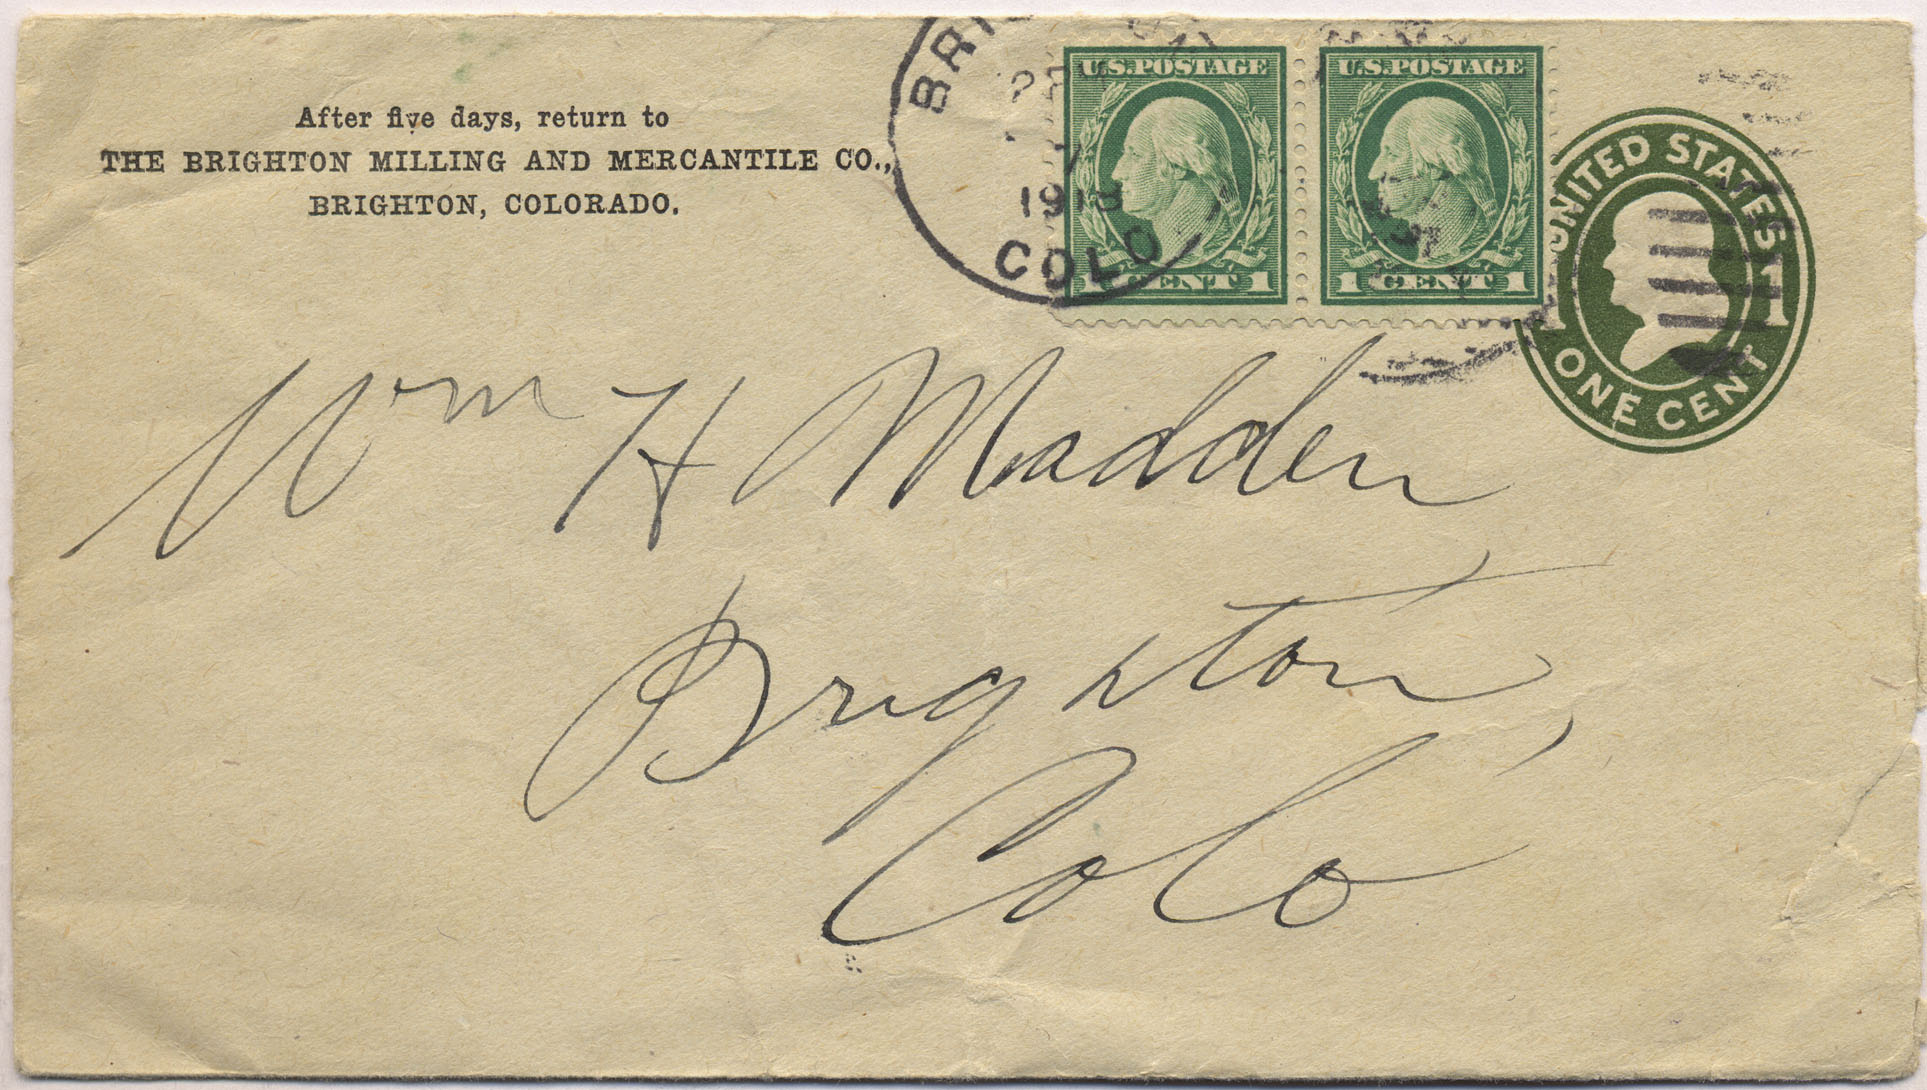 After five days, return to
THE BRIGHTON MILLING AND MERCANTILE CO.,
BRIGHTON, COLORADO.
1918
COLO
U.S.POSTAGE
1 CENT 1
U.S.POSTAGE
1 CENT 1
UNITED STATES
1 1
ONE CENT
Wm H Madden
Brighton,
Colo